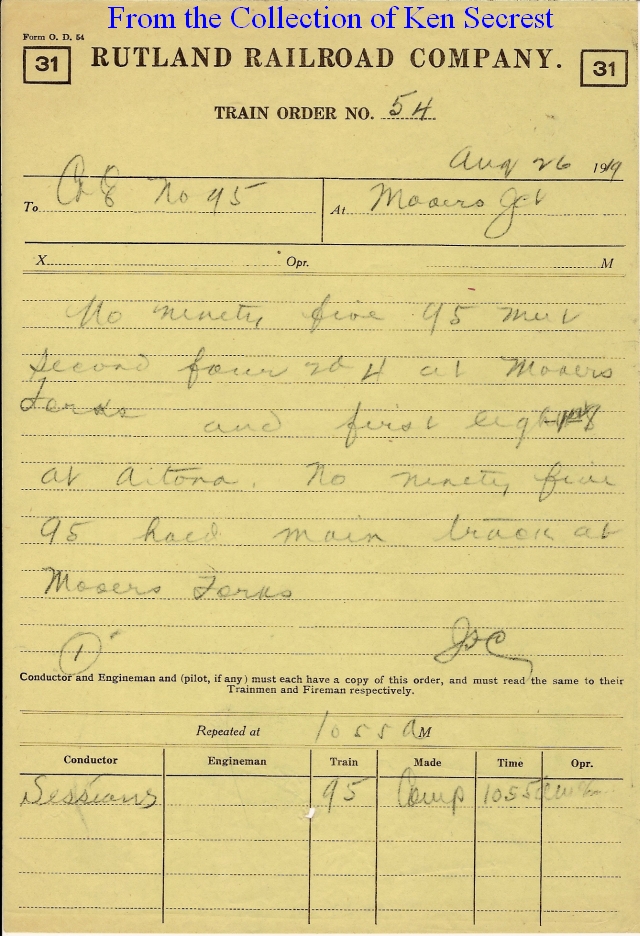 From the Collection of Ken Secrest
Form O. D. 54
31 RUTLAND RAILROAD COMPANY. 31
TRAIN ORDER NO. 54
Aug 26 1919
To C&E No 95 At Mooers Jct
X Opr. M
No ninety five 95 meet
second four 2d 4 at Mooers
Forks and first eight 1st 8
at Altona. No ninety five
95 hold main track at
Mooers Forks
1 JFC
Conductor and Engineman and (pilot, if any) must each have a copy of this order, and must read the same to their
Trainmen and Fireman respectively.
Repeated at 1055 A M
Conductor Engineman Train Made Time Opr.
Sessions 95 Comp 1055